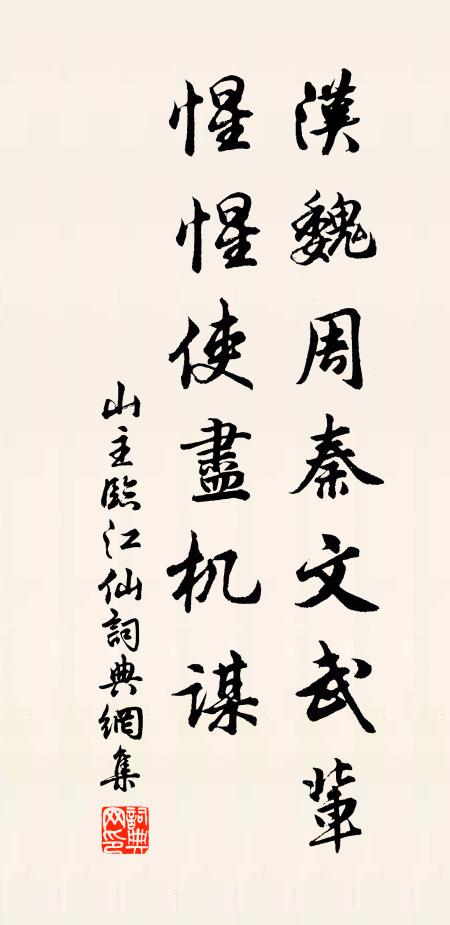 漢魏周秦文武輩
惺惺使盡机謀
山主臨江仙詞典網集
詞典网印